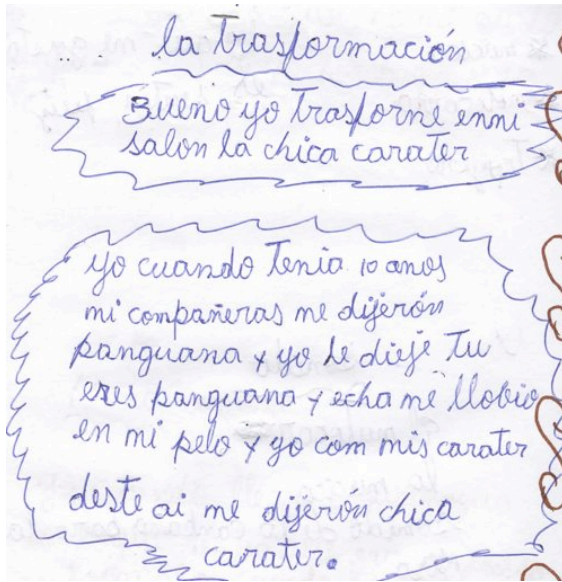 la trasformación
Bueno yo trasforne enmi
salon la chica carater
yo cuando tenia 10 anos
mi compañeras me dijerón
panguana y yo le dieje tu
eres panguana y echa me llobio
en mi pelo y yo com mis carater
deste ai me dijerón chica
carater.